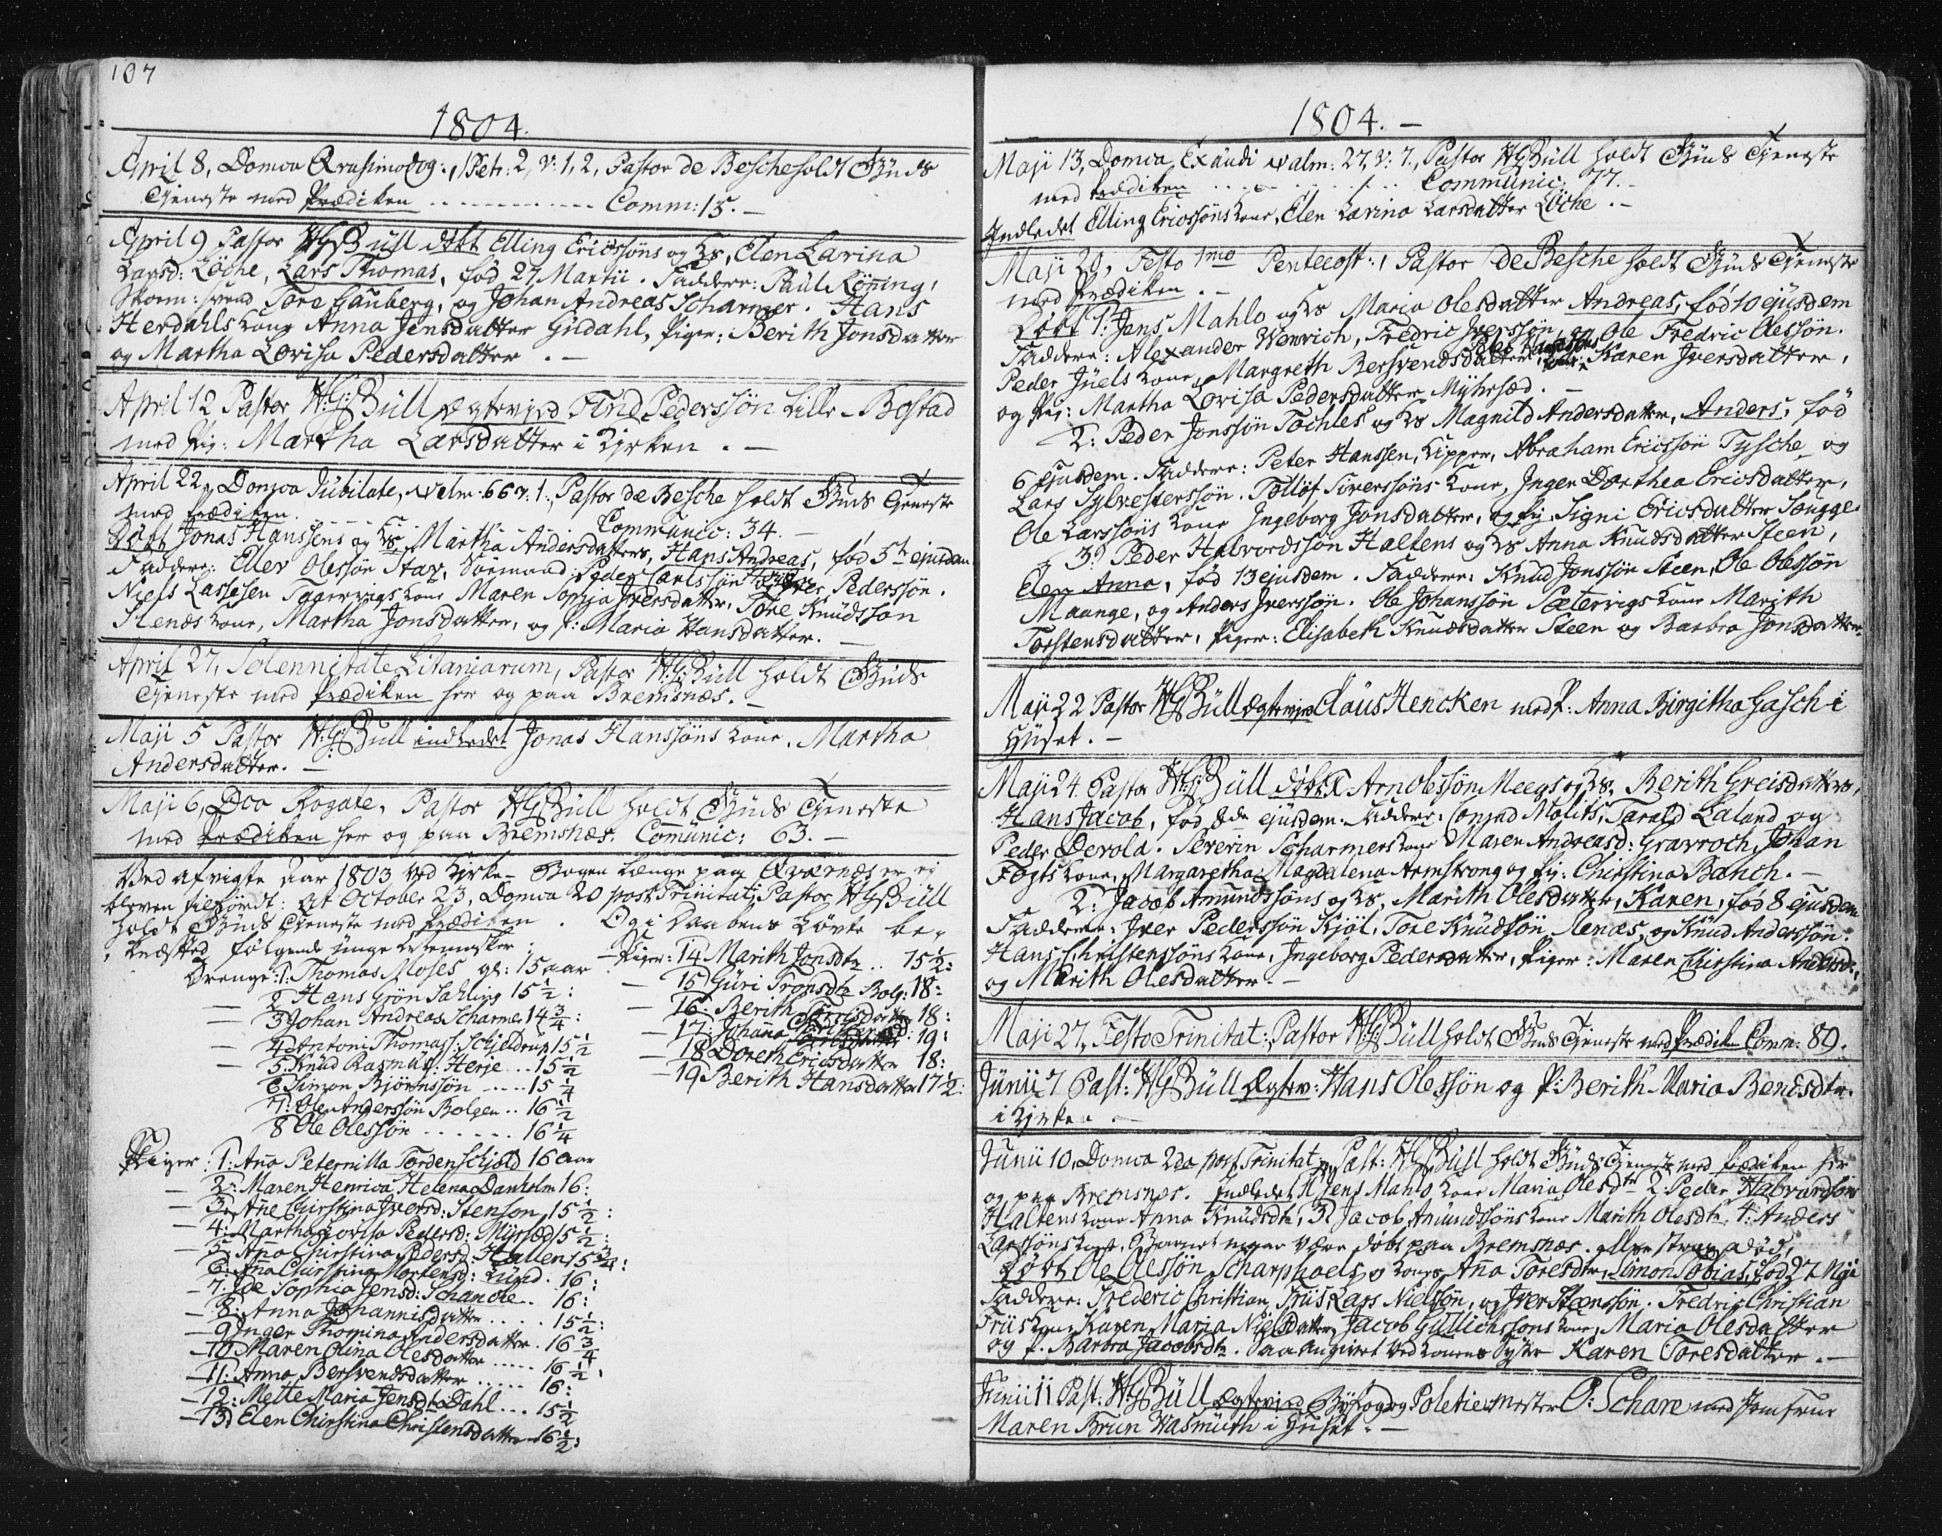 107
1804.
April 8, Domca Qvasimodog:, 1 Petr: 2, v: 1, 2, Pastor de Besche holdt Guds
Tjeneste med Prædiken - - - - - - Comm: 15. -
April 9 Pastor HG Büll döbt Elling Ericssöns og Hs, Elen Karina
Larsd: Löche, Lars Thomas, fød 27 Martii. Faddere: Paul Köning,
Tore Gauberg, og Johan Andreas Scharmer. Hans
Herdahls Kone Anna Jensdatter Gildahl, Piger: Berith Jonsdatter
og Martha Lovisa Pedersdatter. -
April 12 Pastor H:G: Büll Ægtevied Find Pederssön Lille-Bostad
med Pig: Martha Larsdatter i Kirken. -
April 22, Domca Jubilate, Psalm: 66 v: 1, Pastor de Besche holdt Guds Tjeneste
med Prædiken. Communic: 34. -
Döbt Jonas Hanssens og Hs Martha Andersdatters, Hans Andreas, fød 5te ejusdem
Faddere: Ellev Olessön Stav, Peder Carlssön Iver Pederssön.
Niels Lassesen Taarvigs Kone Maren Sophia Iversdatter, Tore Knudssön
Stenæs Kone, Martha Jonsdatter, og P: Maria Hansdatter. -
April 27, Solennitate Litaniarum, Pastor H:G: Büll holdt Guds
Tjeneste med Prædiken her og paa Bremsnæs. -
Maji 5 Pastor H:G: Büll indledet Jonas Hanssöns Kone, Martha
Andersdatter. -
Maji 6, Dca Rogate, Pastor HG Büll holdt Guds Tjeneste
med Prædiken her og paa Bremsnæs. Comunic: 63. -
Ved afvigte Aar 1803 ved Kirke-Bogen Længe paa Qværnæs er ej
bleven tilfördt: at October 23, Domca 20 post Trinitat: Pastor HG Büll
holdt Guds Tjeneste med Prædiken. Og i Daabens Löfte be-
kræfted følgende unge Mennesker:
Drenge: 1: Thomas Moses gl: 15 aar
- 2 Hans Grön Sahling 15 1/2:
- 3 Johan Andreas Scharmer 14 3/4:
- 4 Antoni Thomass: Schjeldrup 15 1/2
- 5 Knud Rasmuss: Herje .. 15 1/2
6 Simon Björnssön .... 15 1/4
7: Ole Anderssön Bolgen .. 16 1/2
8 Ole Olessön ...... 16 1/4
Piger: 1: Aña Peternilla Tordenschjold 16 aar
- 2: Maren Henrica Helena Danholm 16:
- 3: Añe Chirstina Iversd: Stenson 15 1/2:
- 4: Martha Lovisa Pedersd: Myrsæd 15 1/2:
- 5: Aña Chirstina Pedersd: Hallen 15 3/4:
6: Aña Chirstina Mortensd: Lund. 16:
- 7: Ide Sophia Jensd: Schancke .. 16:
- 8: Anna Johannisdatter ..... 15 1/2:
- 9 Inger Thomina Andersdatter. 16 3/4
- 10 Maren Olina Olesdatter ..... 16 1/2:
- 11: Anna Bersvendsdatter ..... 16:
- 12: Mette Maria Jensdt: Dahl ... 15 1/2
- 13: Elen Chirstina Christensdatter 16 1/2:
Piger: 14 Marith Jonsdtr .. 15 1/2:
- 15 Guri Tronsdtr Bolg: 18:
- 16 Berith Torrisdatter 18:
- 17: Johana 19:
- 18 Doreth Ericsdatter 18:
- 19 Berith Hansdatter 17 1/2:
1804. -
Maji 13, Domca Exaudi Psalm: 27, v: 7, Pastor HG Büll holdt Guds Tjeneste
med Prædiken - - - - Communic: 77. -
Indledet Elling Ericssöns Kone, Elen Karina Larsdatter Löche. -
Maji 20, Festo 1mo Pentecost:, Pastor de Besche holdt Guds Tjeneste
med Prædiken. -
Döbt 1: Jens Mahlo og Hs Maria Olesdatter Andreas, fød 10 ejusdem
Faddere: Alexander Wenrich, Fredric Iverssön, og Ole Fredric Olessön.
Peder Juels Kone Margreth Bersvendsdatter, Karen Iversdatter,
og Pig: Martha Lovisa Pedersdatter Myhrsæd. -
2: Peder Jonssön Tochles og Hs Magnild Andersdatter, Anders, fød
6 ejusdem. Faddere: Peter Hanssen, Kipper, Abraham Ericssön Tysche, og
Lars Sylvesterssön. Tollöf Siverssöns Kone, Inger Dorthea Ericsdatter,
Ole Larssöns Kone Ingeborg Jonsdatter, og Pig: Signi Ericsdatter Sougge.
3: Peder Halvordssön Haltens og Hs Anna Knudsdatter Steen,
Elen Anna, fød 13 ejusdem. Faddere: Knud Jonssön Steen, Ole Olessön
Maange, og Anders Iverssön. Ole Johanssön Sætervigs Kone Marith
Torstensdatter, Piger: Elisabeth Knudsdatter Steen og Barbra Jonsdatter.
Maji 22 Pastor HG Büll Ægtevied Claus Hencken med P: Anna Birgitha Gasch i
Huset. -
Maji 24 Pastor H:G: Büll döbt 1 Arn Olessön Meegs og Hs, Berith Greisdatters,
Hans Jacob, fød 8de ejusdem. Faddere: Conrad Molits, Tarald Laland og
Peder Devold. Severin Scharmers Kone Maren Andreasd: Gravroch, Johan
Fogts Kone, Margaretha Magdalena Armstrong og Pig: Chirstina Banch. -
2: Jacob Amundssöns og Hs, Marith Olesdatter, Karen, fød 8 ejusdem
Faddere: Iver Pederssön Kjöl, Tore Knudssön Stenæs, og Knud Anderssön.
Hans Christenssöns Kone, Ingeborg Pedersdatter, Piger: Maren Chirstina Andersd:,
og Marith Olesdatter. -
Maji 27, Festo Trinitat: Pastor HG Büll holdt Guds Tjeneste med Prædik Comm: 89.
Junii 7 Past: HG Büll Ægtev: Hans Olessön og P: Berith Maria Bendsdtr.
i Kirken. -
Junii 10, Domca 2da post Trinitat: Past: HG Büll holdt Guds Tjeneste med Prædiken her
og paa Bremsnæs. Indledet 1 Jens Mahlo Kone Maria Olesdtr 2 Peder Halvordssön
Haltens Kone Anna Knudsdtr, 3 Jacob Amundssöns Kone Marith Olesdtr, 4: Anders
Larssöns Kone, Barnet
Döbt Ole Olessön Scharphoels og Kones Aña Toresdtr, Simon Tobias, fød 27 Maji
Faddere: Frederic Christian Friis, Lars Nielssön, og Iver Stenssön. Fredric Christian
Friis Kone Karen Maria Nielsdatter, Jacob Gulliekssöns Kone, Maria Olesdatter
og P. Barbra Jacobsdtr. Saa angivet ved Konens Syster Karen Toresdatter. -
Junii 11 Past: HG Büll Ægtevied Byfoged og Politiemester P: Schare med Jomfrue
Maren Brun Wasmuth i Huset. -